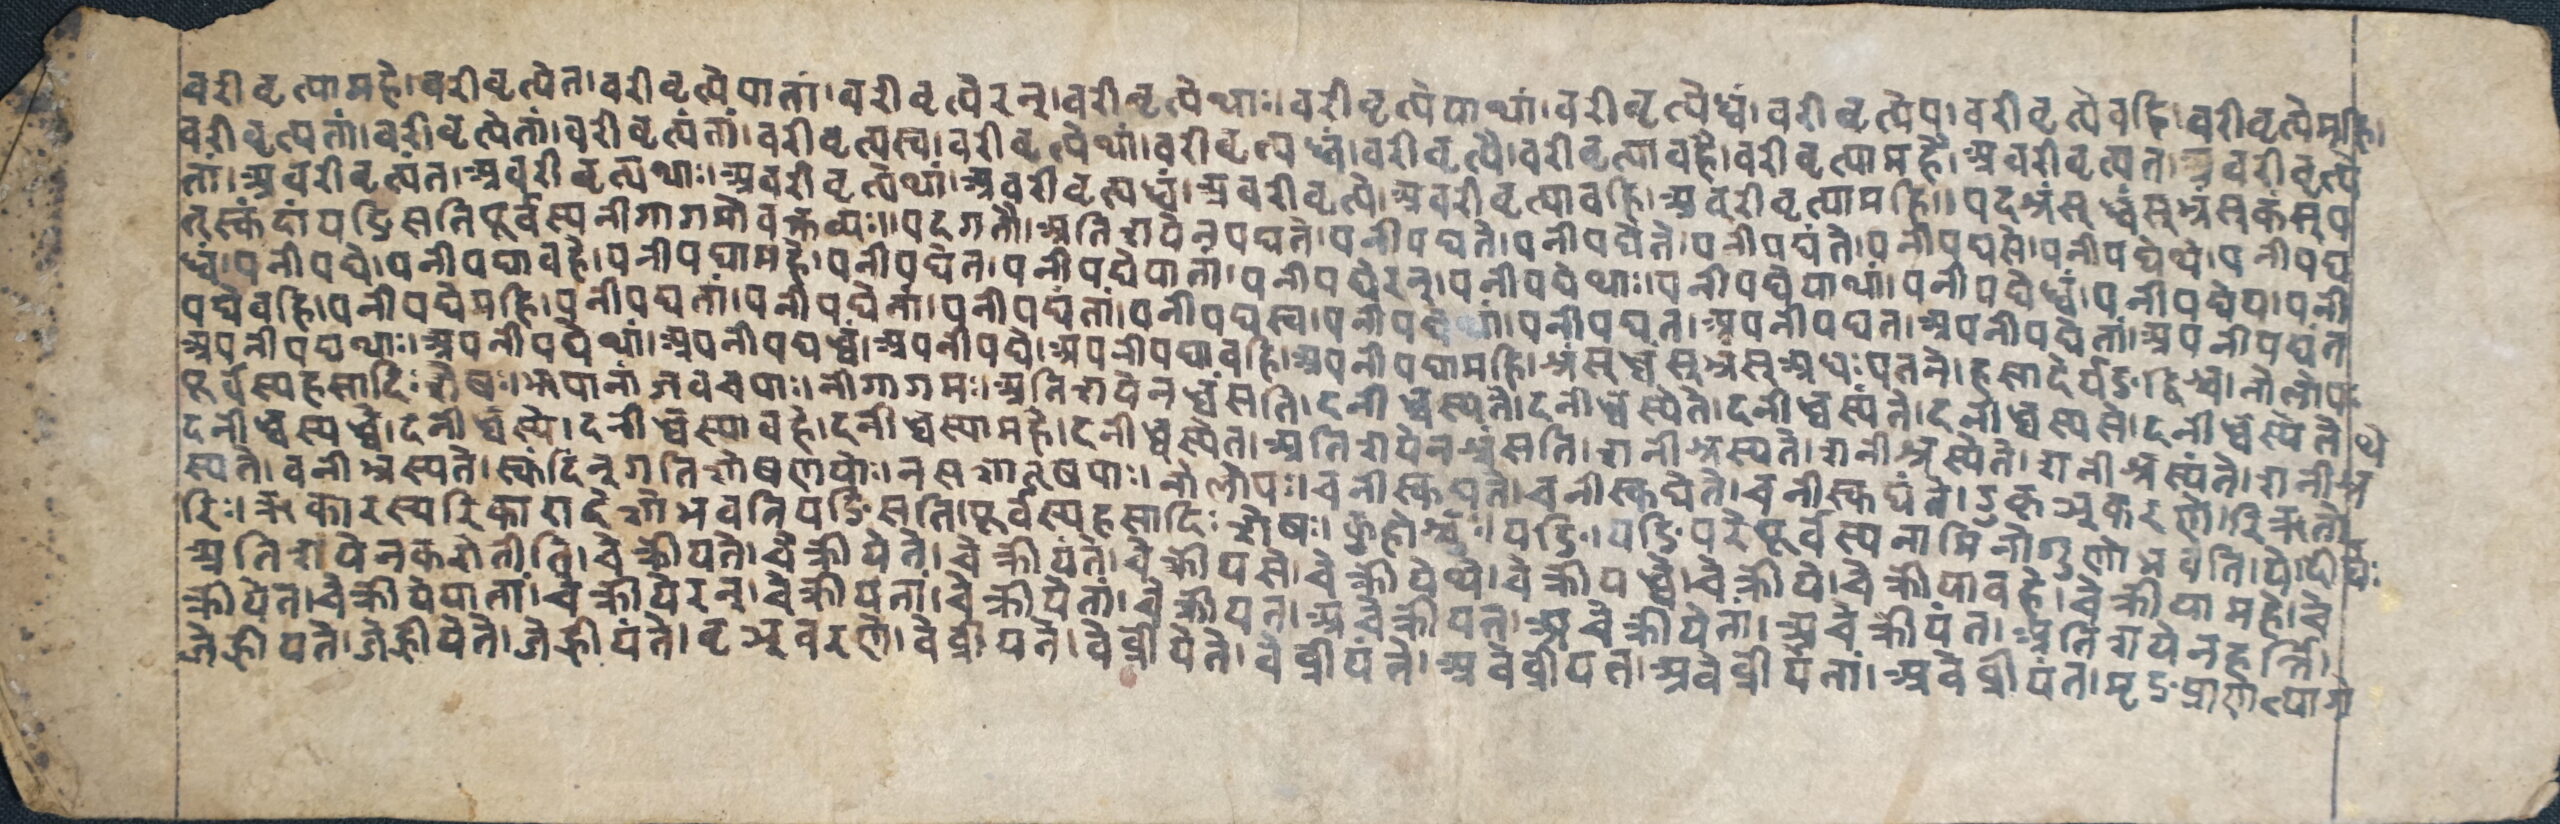 वरीवृत्यामहे।वरीवृत्येत।वरीवृत्येयातां।वरीवृत्येरन्।वरीवृत्येथाः।वरीवृत्येयाथां।वरीवृत्येध्वं।वरीवृत्येय।वरीवृत्येवहि।वरीवृत्येमहि।
वरीवृत्यतां।वरीवृत्येतां।वरीवृत्यंतां।वरीवृत्यस्व।वरीवृत्येथां।वरीवृत्यध्वं।वरीवृत्यै।वरीवृत्यावहै।वरीवृत्यामहै।अवरीवृत्यत।अवरीवृत्ये
तां।अवरीवृत्यंत।अवरीवृत्यथाः।अवरीवृत्येथां।अवरीवृत्यध्वं।अवरीवृत्ये।अवरीवृत्यावहि।अवरीवृत्यामहि॥पदभ्रंसुध्वंसुभ्रंसकंसुप
तस्कंदांयङिसतिपूर्वस्यनीगागमोवक्तव्यः॥पदगतौ।अतिशयेनपद्यते।पनीपद्यते।पनीपद्येते।पनीपद्यंते।पनीपद्यसे।पनीपद्येथे।पनीपद्य
ध्वं।पनीपद्ये।पनीपद्यावहे।पनीपद्यामहे।पनीपद्येत।पनीपद्येयातां।पनीपद्येरन्।पनीपद्येथाः।पनीपद्येयाथां।पनीपद्येध्वं।पनीपद्येय।पनी
पद्येवहि।पनीपद्येमहि।पनीपद्यतां।पनीपद्येतां।पनीपद्यंतां।पनीपद्यस्व।पनीपद्येथां।पनीपद्यत।अपनीपद्यत।अपनीपद्येतां।अपनीपद्यंत
अपनीपद्यथाः।अपनीपद्येथां।अपनीपद्यध्वं।अपनीपद्ये।अपनीपद्यावहि।अपनीपद्यामहि।भ्रंसुध्वंसुभ्रंसुअधःपतने।हसादेर्यङ्द्विश्च।नोलोपः
पूर्वस्यहसादिःशेषः।झपानांजवचपाः।नीगागमः।अतिशयेनध्वंसति।दनीध्वस्यते।दनीध्वस्येते।दनीध्वस्यंते।दनीध्वस्यसे।दनीध्वस्येते थे
दनीध्वस्यध्वे।दनीध्वस्ये।दनीध्वस्यावहे।दनीध्वस्यामहे।दनीध्वस्येत।अतिशयेनभ्रंसति।शनीभ्रस्यते।शनीभ्रस्येते।शनीभ्रस्यंते।शनीभ्र
स्यते।वनीभ्रस्यते।स्कंदिंर्नुगतिशोषणयोः।नसशात्षपाः।नोलोपः।चनीस्कद्यते।चनीस्कद्येते।चनीस्कद्यंते।डुकृञ्करणे।रिऋतो
रिः।ऋकारस्यरिकारादेशोभवतियङिसति।पूर्वस्यहसादिःशेषः।कुहोश्चुः।यङि।यङिपरेपूर्वस्यनामिनोगुणोभवति।ये।दीर्घः
अतिशयेनकरोतीति।चेक्रीयते।चेक्रीयेते।चेक्रीयंते।चेक्रीयसे।चेक्रीयेथे।चेक्रीयध्वे।चेक्रीये।चेक्रीयावहे।चेक्रीयामहे।चे
क्रीयेत।चेक्रीयेयातां।चेक्रीयेरन्।चेक्रीयतां।चेक्रीयेतां।चेक्रीयत।अचेक्रीयत।अचेक्रीयेतां।अचेक्रीयंत।अतिशयेनहर्त्ति।
जेह्रीयते।जेह्रीयेते।जेह्रीयंते।वृञ्वरणे।वेव्रीयते।वेव्रीयेते।वेव्रीयंते।अवेव्रीयत।अवेव्रीयेतां।अवेव्रीयंत।मृङ्प्राणत्यागे